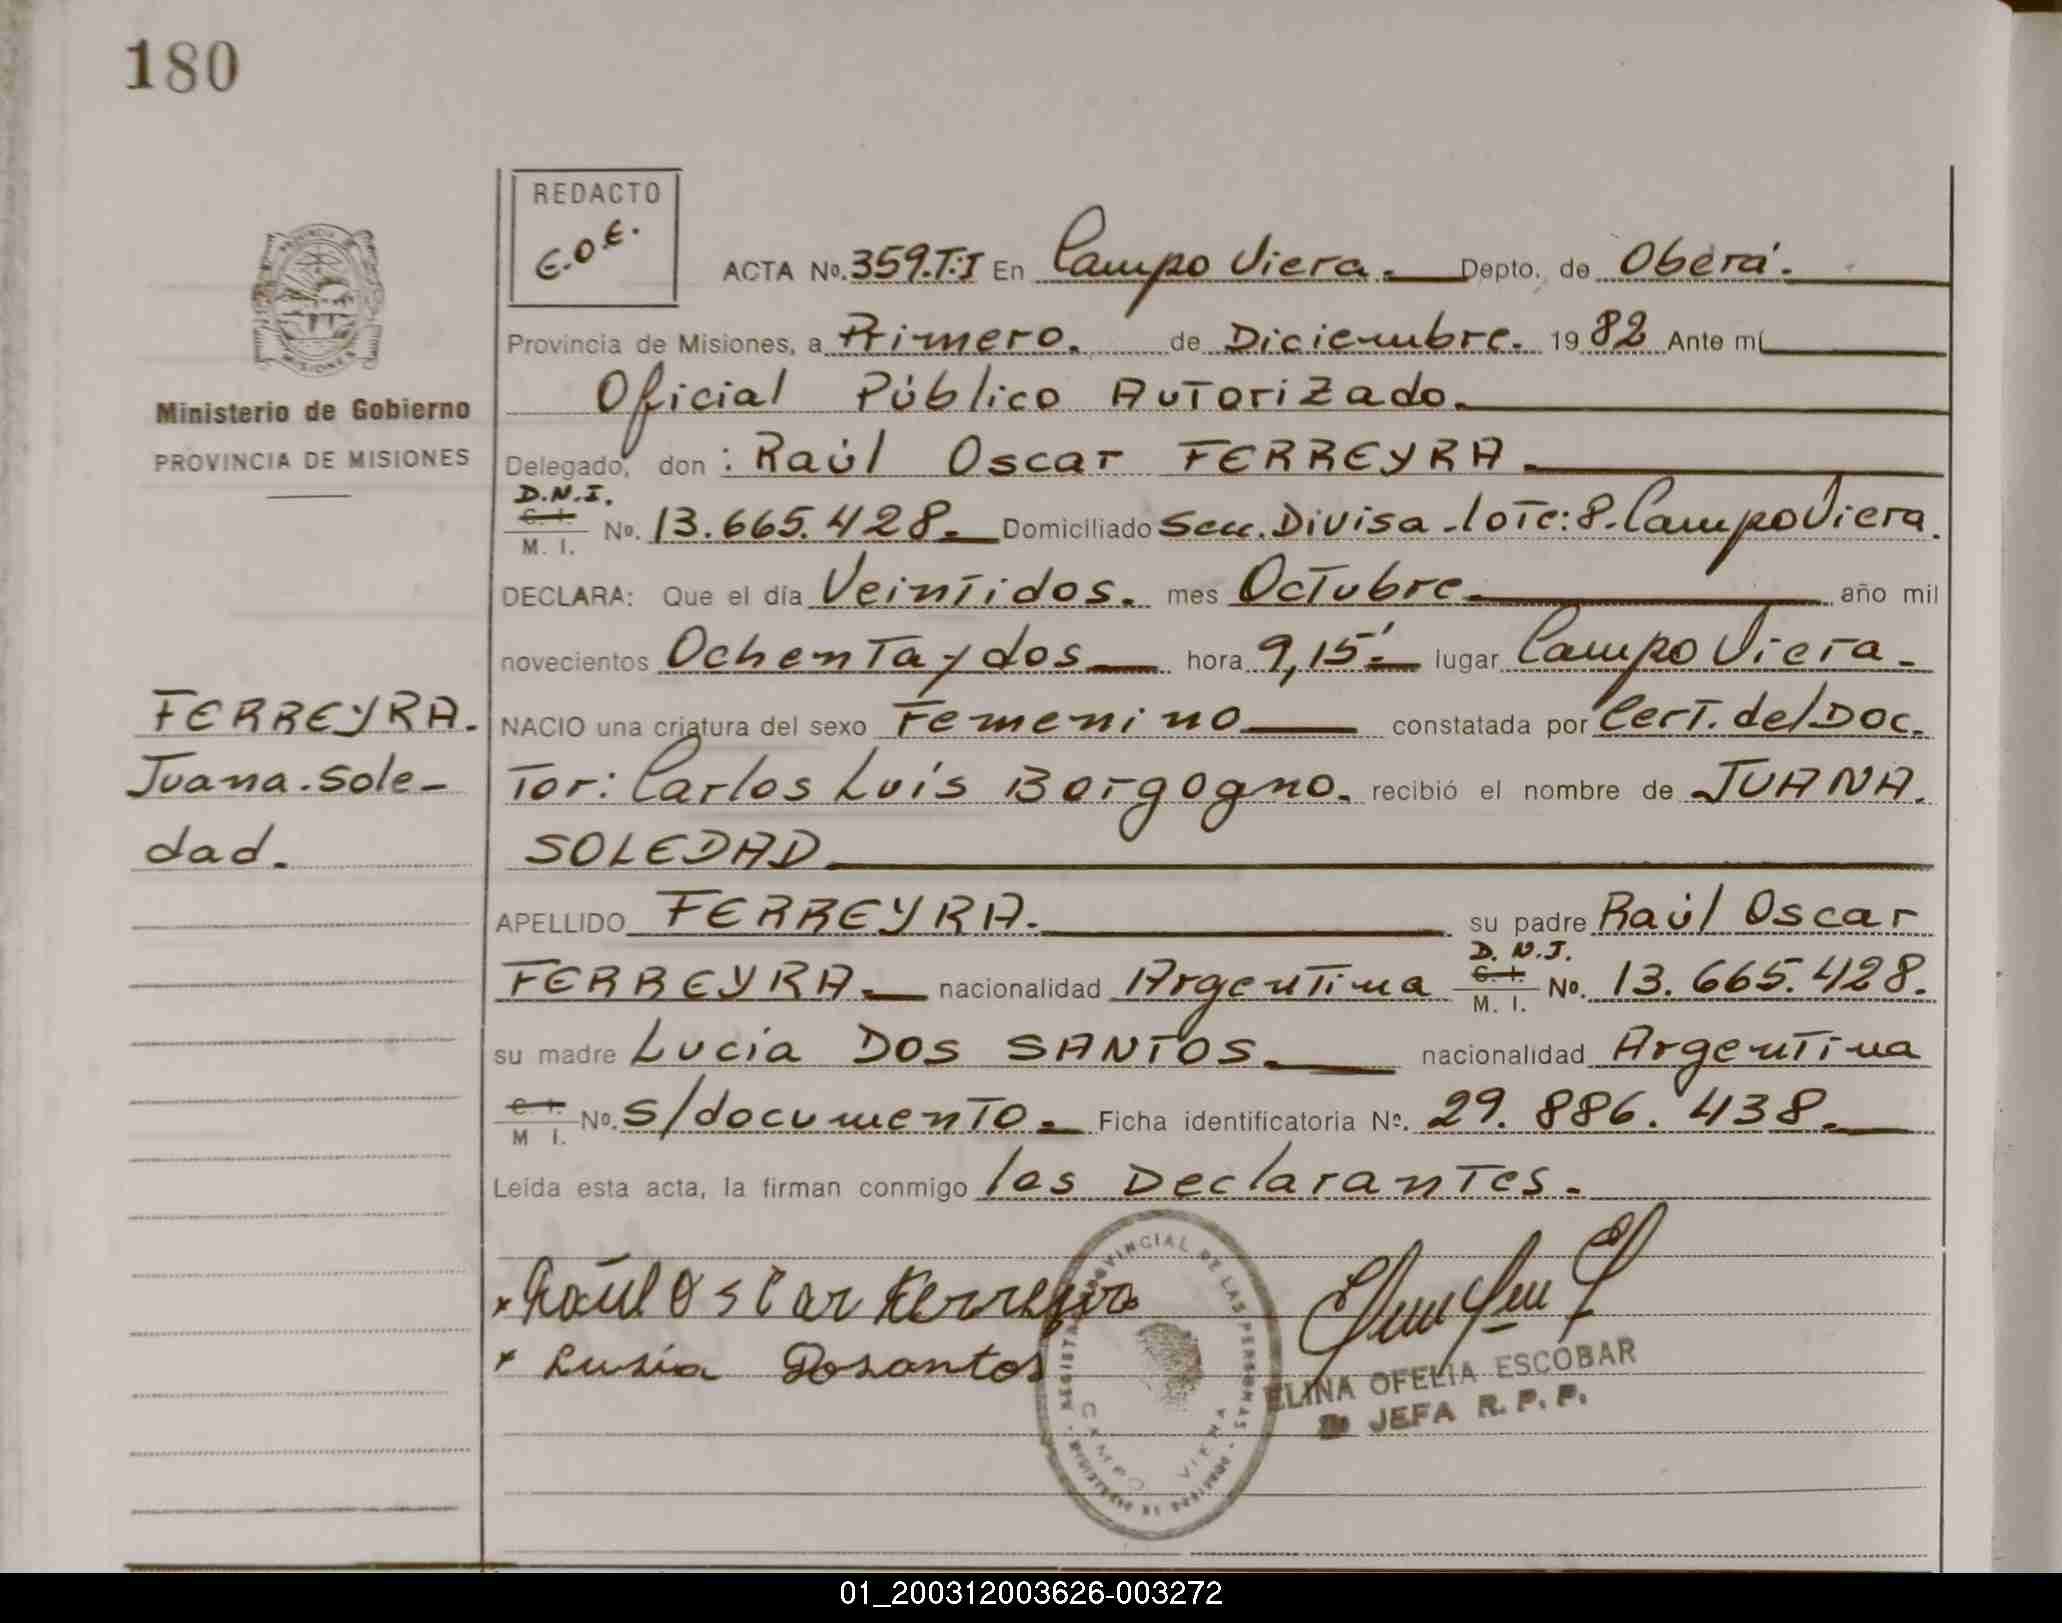 180
REDACTO
E.O.E.
ACTA No. 359.T:I En Campo Viera. Depto. de Oberá.
Provincia de Misiones, a Primero. de Diciembre. 1982 Ante mí
Oficial Público Autorizado.
Delegado, don : Raúl Oscar FERREYRA.
D.N.I.
C. I.
M. I. No. 13.665.428. Domiciliado Secc. Divisa - lote: 8. Campo Viera.
DECLARA: Que el día Veintidos. mes Octubre año mil
novecientos Ochenta y dos hora 9,15' lugar Campo Viera.
NACIO una criatura del sexo Femenino constatada por Cert. del Doc
tor: Carlos Luis Borgogno. recibió el nombre de JUANA.
SOLEDAD
APELLIDO FERREYRA. su padre Raúl Oscar
D. N. I.
FERREYRA. nacionalidad Argentina C. I. M. I. No. 13. 665. 428.
su madre Lucia DOS SANTOS. nacionalidad Argentina
C. I. M I. No. S/documento. Ficha identificatoria No. 29. 886. 438.
Leída esta acta, la firman conmigo los Declarantes.
Ministerio de Gobierno
PROVINCIA DE MISIONES
FERREYRA.
Juana. Sole-
dad.
x Raúl Oscar Ferreyra
x Lusia Dosantos
PROVINCIAL DE LAS PERSONAS
CAMPO VIERA
ELINA OFELIA ESCOBAR
JEFA R. P. P.
01_200312003626-003272